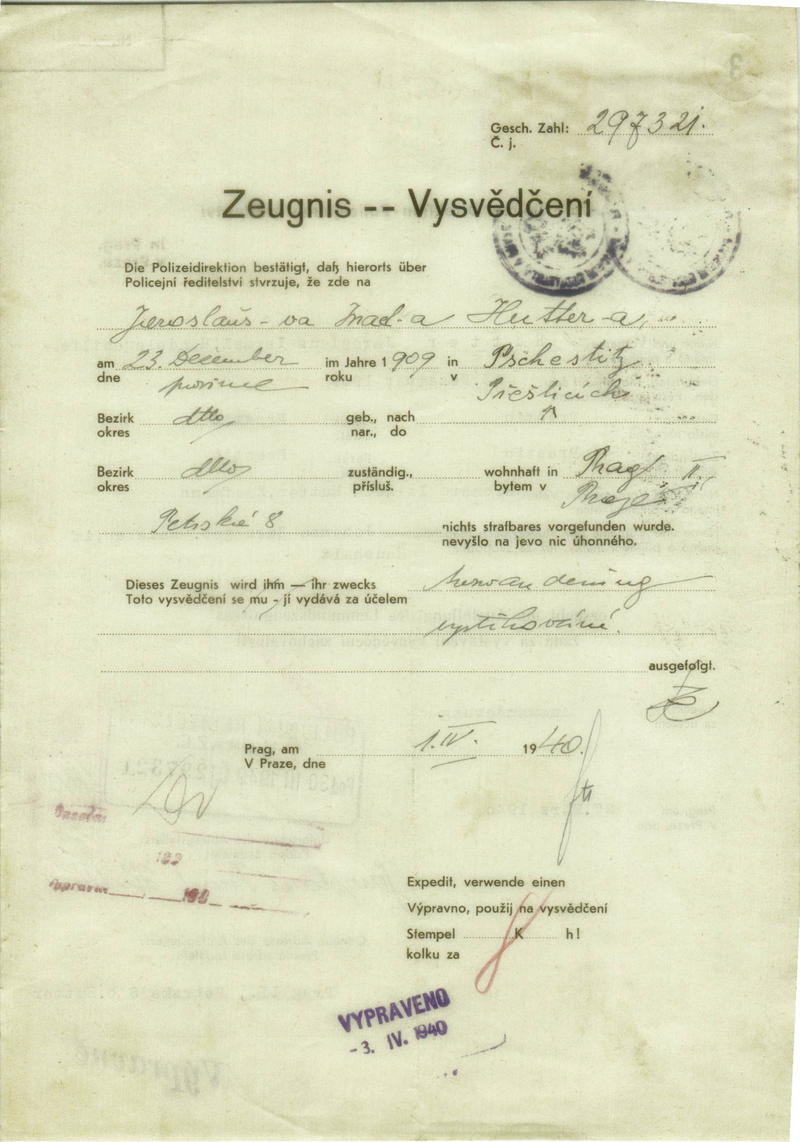 Gesch. Zahl: 297321.
Č. j.
Zeugnis -- Vysvědčení
Die Polizeidirektion bestätigt, daß hierorts über
Policejní ředitelství stvrzuje, že zde na
Hutter-a,
am 23. December im Jahre 1909 in Pschestitz
dne prosince roku v Přešticích
Bezirk dtto geb., nach
okres nar., do
Bezirk dtto zuständig., wohnhaft in Prag II.
okres přísluš. bytem v Praze
Petrská 8 nichts strafbares vorgefunden wurde.
nevyšlo na jevo nic úhonného.
Dieses Zeugnis wird ihm — ihr zwecks
Toto vysvědčení se mu - jí vydává za účelem
vystěhování.
ausgefolgt.
Prag, am 1. IV. 1940.
V Praze, dne
Expedit, verwende einen
Výpravno, použij na vysvědčení
Stempel K h!
kolku za
VYPRAVENO
-3. IV. 1940